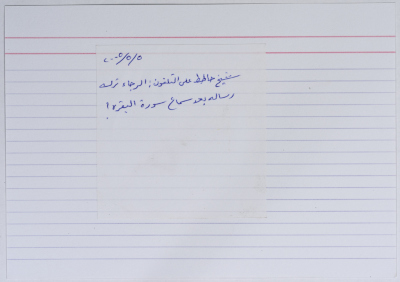 ٢٠٠٥/٥/٥
شيخ حافظ على التلفون: الرجاء ترك
رسالة بعد سماع سورة البقرة!